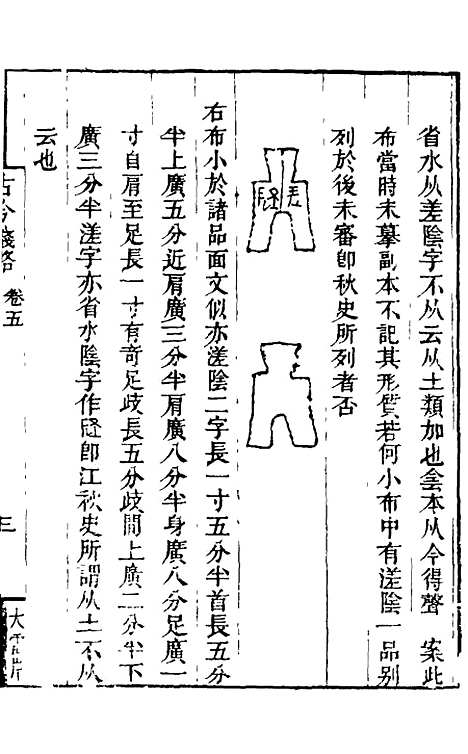 省水从差陰字不从云从土類加也侌本从今得聲　案此
布當時未摹副本不記其形質若何小布中有溠陰一品别
列於後未審卽秋史所列者否
右布小於諸品面文似亦溠陰二字長一寸五分半首長五分
半上廣五分近肩廣三分半肩廣八分半身廣八分足廣一
寸自肩至足長一寸有奇足歧長五分歧間上廣二分半下
廣三分半溠字亦省水陰字作𨹧卽江秋史所謂从土不从
云也
古今錢略　卷五
三